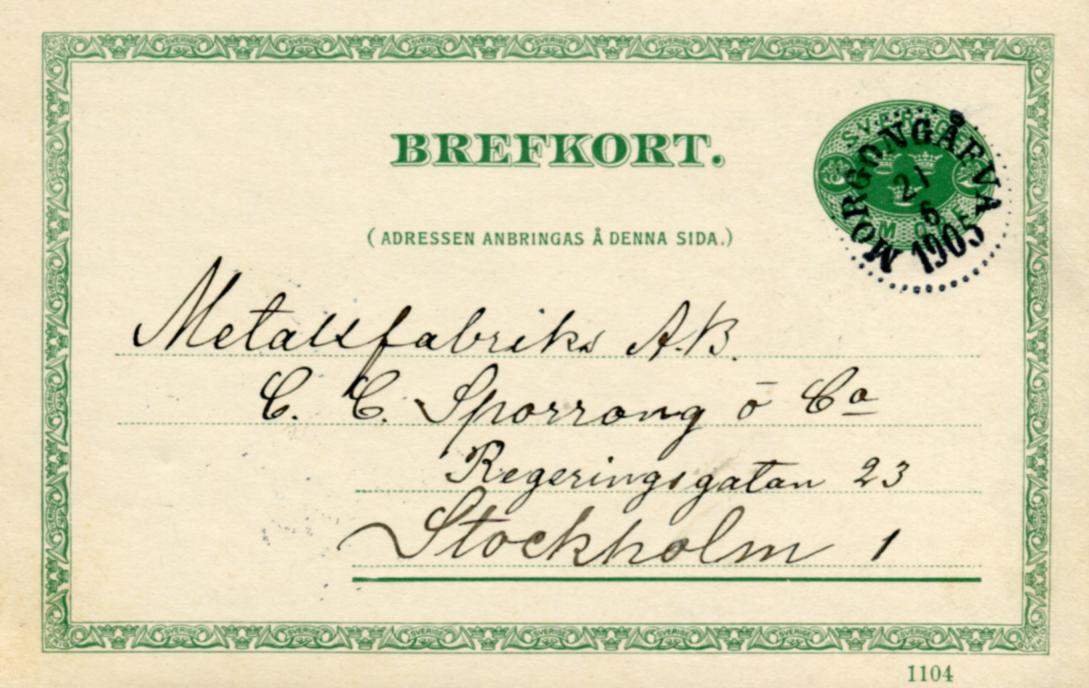 BREFKORT.
SVERIGE
MORGONGÅFVA
21
6
1905
(ADRESSEN ANBRINGAS Å DENNA SIDA.)
Metallfabriks A.B.
C. C. Sporrong ō Co
Regeringsgatan 23
Stockholm 1
1104